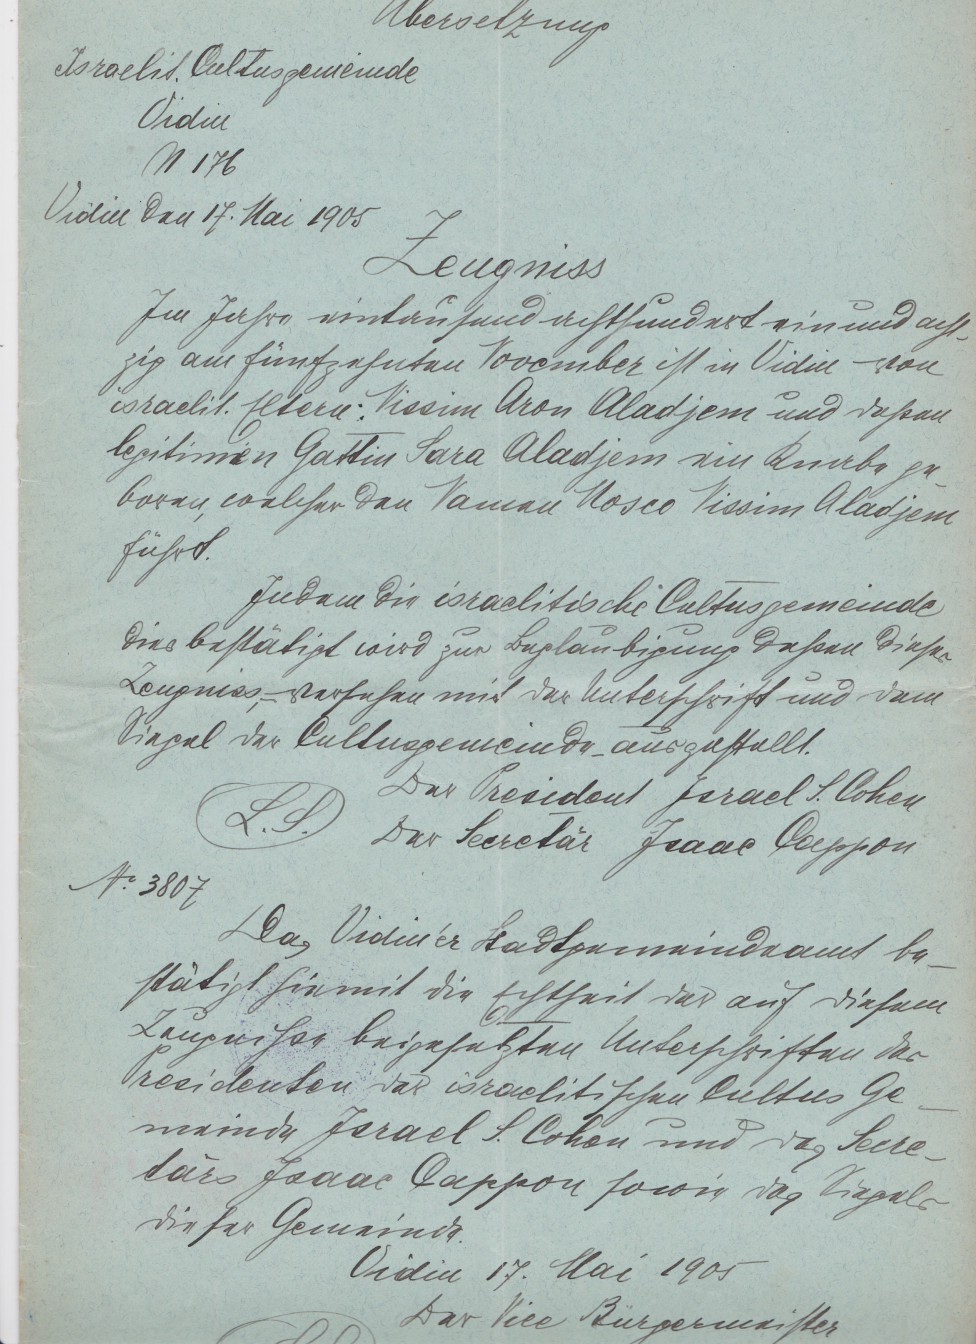 Übersetzung
Israelit. Cultusgemeinde
Vidin
N 176
Vidin den 17. Mai 1905
Zeugniss
Im Jahre eintausend achthundert einundacht-
zig am fünfzehnten November ist in Vidin von
israelit. Eltern: Nissim Aron Aladjem und dessen
legitimen Gattin Sara Aladjem ein Knabe ge-
boren, welcher den Namen Mosco Nissim Aladjem
führt.
Indem die israelitische Cultusgemeinde
dies bestätigt wird zur Beglaubigung dessen dieses
Zeugniss, versehen mit der Unterschrift und dem
Siegel der Cultusgemeinde ausgestellt.
Der President Israel S. Cohen
L.S.
Der Secretär Isaac Cappon
No 3807
Das Vidin'er Stadtgemeindeamt be-
stätigt hiemit die Echtheit der auf diesem
Zeugnisse beigesetzten Unterschriften des
Presidenten der israelitischen Cultus Ge-
meinde Israel S. Cohen und des Secre-
tärs Isaac Cappon sowie des Siegels
dieser Gemeinde.
Vidin 17. Mai 1905
Der Vice Bürgermeister
L.S.